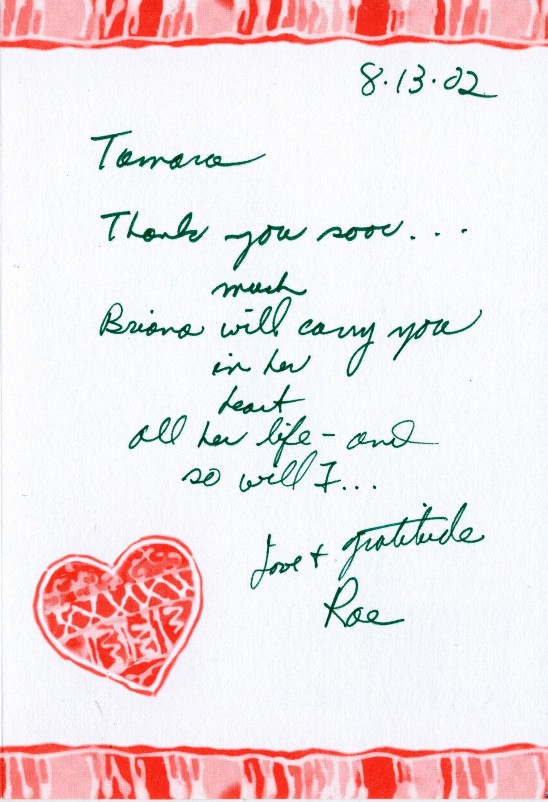 8.13.02
Tamara
Thank you sooo...
much
Briana will carry you
in her
heart
all her life - and
so will I...
Love + gratitude
Rae